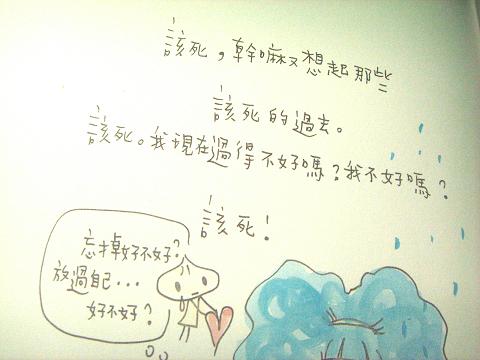 該死，幹嘛又想起那些
該死的過去。
該死。我現在過得不好嗎？我不好嗎？
該死！
忘掉好不好？
放過自己...
好不好？